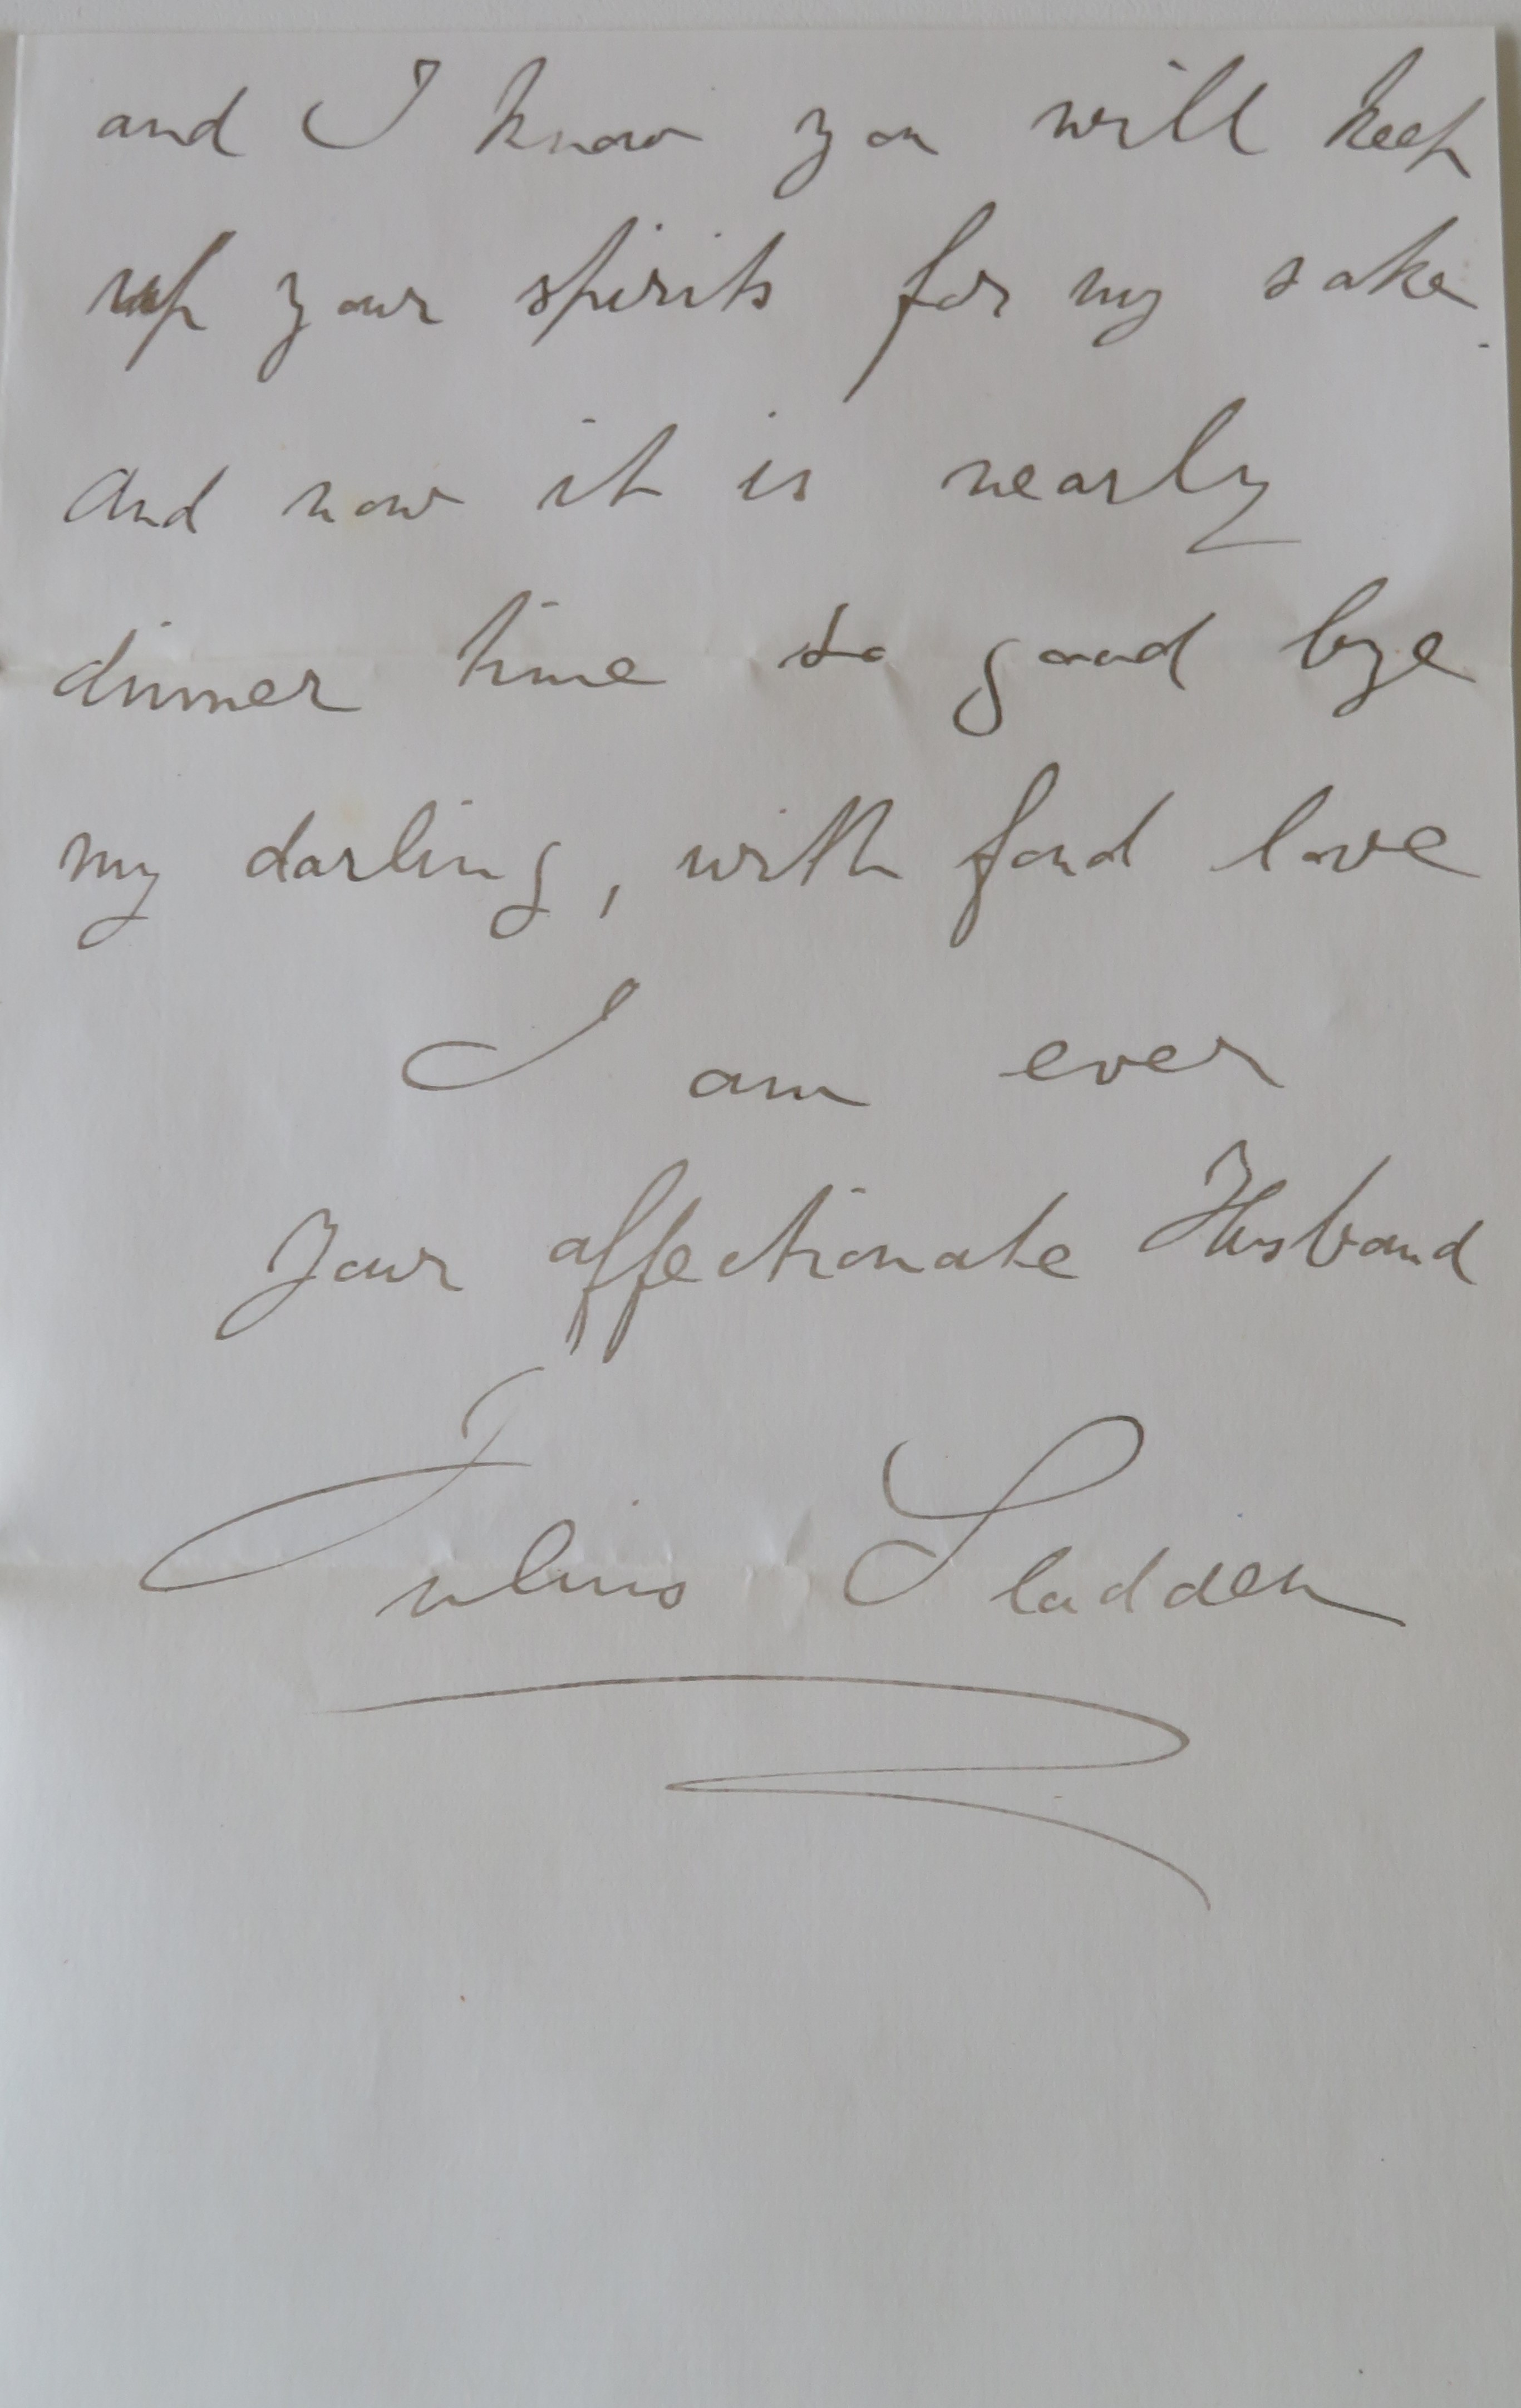 and I know you will keep
up your spirits for my sake.
And now it is nearly
dinner time so good bye
my darling, with fond love
I am ever
Your affectionate Husband
Julius Sladden